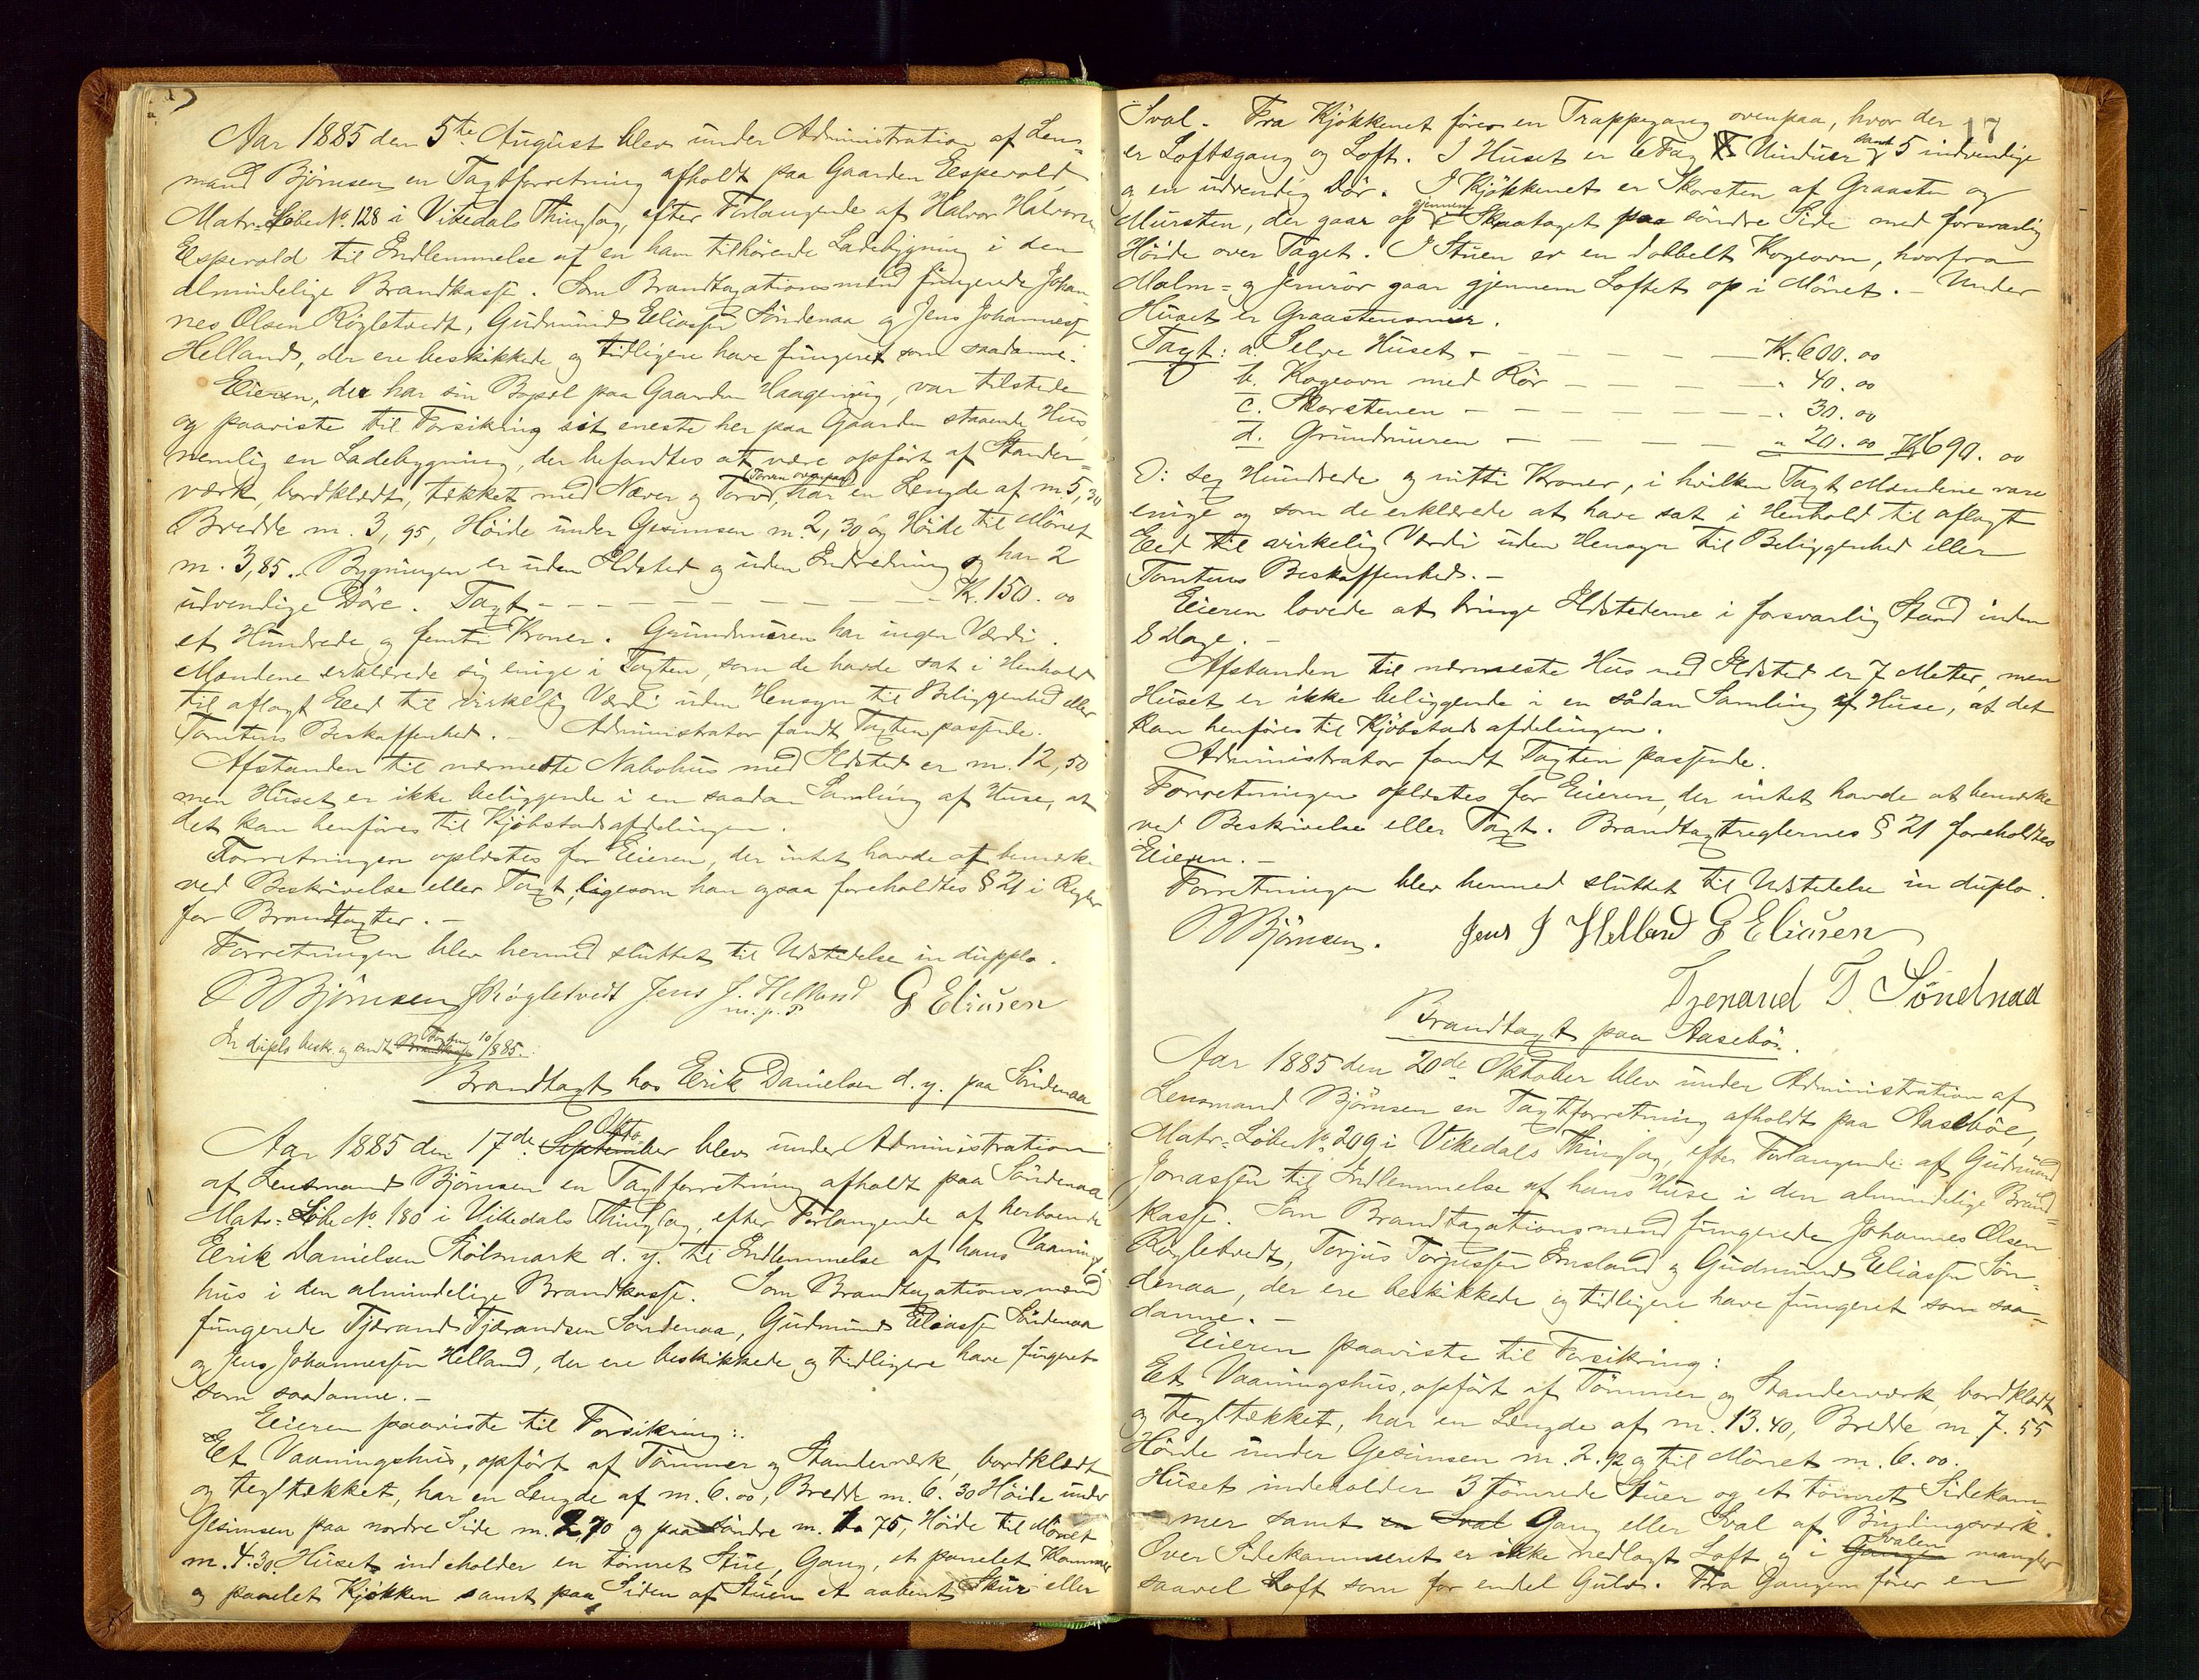 Aar 1885 den 5te August blev under Administration af Lens=
mand Björnsen en Taxtforretning afholdt paa Gaarden Espevold
Matr. Löbe No. 128 i Vikedals Thinglag, efter Forlangende af Halvor Halvorsen
Espevold til Indlemmelse af en ham tilhörende Ladebygning i den
almindelige Brandkasse. Som Brandtaxationsmænd fungerede Johan=
nes Olsen Rögletvedt, Gudmund Eliassen Söndenaa og Jens Johannessen
Helland, der ere beskikkede og tidligere have fungeret som saadanne.
Eieren, der har sin Bopæl paa Gaarden, var tilstede
og paaviste til Forsikring sit eneste her paa Gaarden staaende Hus,
nemlig en Ladebygning, der befandtes at være opfört af Stander=
værk, bordklædt, tækket med Næver og Torv, (Torven ovenpaa) har en Længde af m. 5,30
Bredde m. 3,95, Höide under Gesimsen m. 2,30 og Höide til Mönet
m. 3,85. Bygningen er uden Ildsted og uden Indredning og har 2
udvendige Döre. Taxt - - - - - - - Kr. 150.00
et Hundrede og femti Kroner. Grundmuren har ingen Værdi.
Mændene erklærede sig enige i Taxten, som de havde sat i Henhold
til aflagt Eed til virkelig Værdi uden Hensyn til Beliggenhed eller
Tomtens Beskaffenhed. - Administrator fandt Taxten passende.
Afstanden til nærmeste Nabohus med Ildsted er m. 12,50
men Huset er ikke beliggende i en saadan Samling af Huse, at
det kan henföres til Kjöbstadsafdelingen.
Forretningen oplæstes for Eieren, der intet havde at bemærke
ved Beskrivelse eller Taxt, ligesom han ogsaa foreholdtes § 21 i Regler
for Brandtaxter. -
Forretningen blev hermed sluttet til Udstedelse in duplo.
B Björnsen JRögletvedt Jens J. Helland G Eliasen
m. p. P
In duplo beskr. og sendt 10/1885.
Brandtaxt hos Eerik Danielsen d. y. paa Söndenaa
Aar 1885 den 17de Oktober blev under Administration
af Lensmand Björnsen en Taxtforretning afholdt paa Söndenaa
Matr. Löbe No. 180 i Vikedals Thinglag, efter Forlangende af herboende
Eerik Danielsen Stölsmark d. y. til Indlemmelse af hans Vaanings=
hus i den almindelige Brandkasse. Som Brandtaxationsmænd
fungerede Tjærand Tjærandsen Söndenaa, Gudmund Eliassen Söndenaa
og Jens Johannessen Helland, der ere beskikkede og tidligere have fungeret
som saadanne. -
Eieren paaviste til Forsikring:
Et Vaaningshus, opfört af Tömmer og Standerværk, bordklædt
og tegltækket, har en Længde af m. 6.00, Bredde m. 6.30 Höide under
Gesimsen paa nordre Side m. 2.70 og paa söndre m. 1.75, Höide til Mönet
m. 4.30. Huset indeholder en tömret Stue, Gang, et panelet Kammer
og panelet Kjökken samt paa Siden af Stuen et aabent Skur eller
17
Sval. Fra Kjökkenet föres en Trappegang ovenpaa, hvor der
er Loftsgang og Loft. I Huset er 6 Fag Vinduer samt 5 indvendige
og en udvendig Dör. I Kjökkenet er Skorsten af Graasten og
Mursten, der gaar op gjennem Skraataget paa söndre Side med forsvarlig
Höide over Taget. I Stuen er en dobbelt Kogeovn, hvorfra
Malm= og Jernrör gaar gjennem Loftet op i Mönet. - Under
Huset er Graastensmur.
Taxt: a. Selve Huset - - - - - Kr. 600.00
b. Kogeovn med Rör - - - - " 40.00
c. Skorstenen - - - - - " 30.00
d. Grundmuren - - - - " 20.00 Kr 690.00
O: sex Hundrede og nitti Kroner, i hvilken Taxt Mændene vare
enige og som de erklærede at have sat i Henhold til aflagt
Eed til virkelig Værdi uden Hensyn til Beliggenhed eller
Tomtens Beskaffenhed. -
Eieren lovede at bringe Ildstederne i forsvarlig Stand inden
8 Dage. -
Afstanden til nærmeste Hus med Ildsted er 7 Metter, men
Huset er ikke beliggende i en sådan Samling af Huse, at det
kan henföres til Kjöbstadsafdelingen.
Administrator fandt Taxten passende.
Forretningen oplæstes for Eieren, der intet havde at bemærke
ved Beskrivelse eller Taxt. Brandtaxtreglernes § 21 foreholdtes
Eieren. -
Forretningen blev hermed sluttet til Udstedelse in duplo.
B Björnsen. Jens J Helland G Eliasen
Tjerand T. Söndnaa
Brandtaxt paa Aasebö.
Aar 1885 den 20de Oktober blev under Administration af
Lensmand Björnsen en Taxtforretning afholdt paa Aaseböe,
Matr. Löbe No. 209 i Vikedals Thinglag, efter Forlangende af Gudmund
Jonassen til Indlemmelse af hans Huse i den almindelige Brand=
kasse. Som Brandtaxationsmænd fungerede Johannes Olsen
Rögletvedt, Torjus Torjussen Imsland og Gudmund Eliassen Sön=
denaa, der ere beskikkede og tidligere have fungeret som saa=
danne. -
Eieren paaviste til Forsikring:
Et Vaaningshus, opfört af Tömmer og Standerværk, bordklædt
og tegltækket, har en Længde af m. 13.40, Bredde m. 7.55
Höide under Gesimsen m. 2.92 og til Mönet m. 6.00.
Huset indeholder 3 tömrede Stuer og et tömret Sidekam=
mer samt en Sval Gang eller Sval af Bindingsværk.
Over Sidekammeret er ikke nedlagt Loft og i Svalen mangler
saavel Loft som for endel Gulv. Fra Gangen förer en